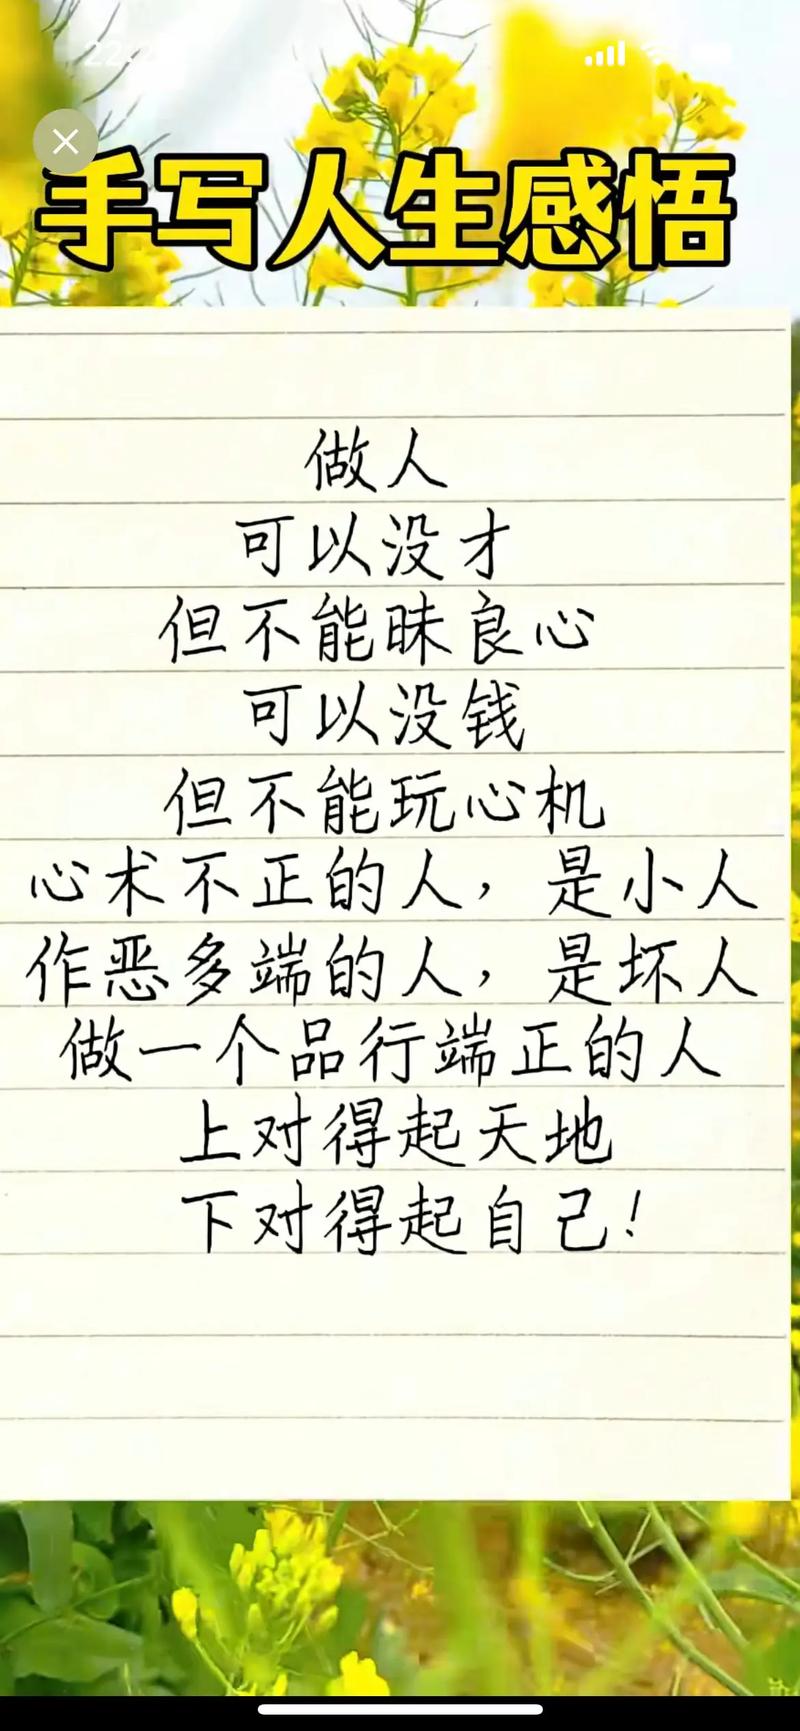 手写人生感悟
做人
可以没才
但不能昧良心
可以没钱
但不能玩心机
心术不正的人，是小人
作恶多端的人，是坏人
做一个品行端正的人
上对得起天地
下对得起自己！